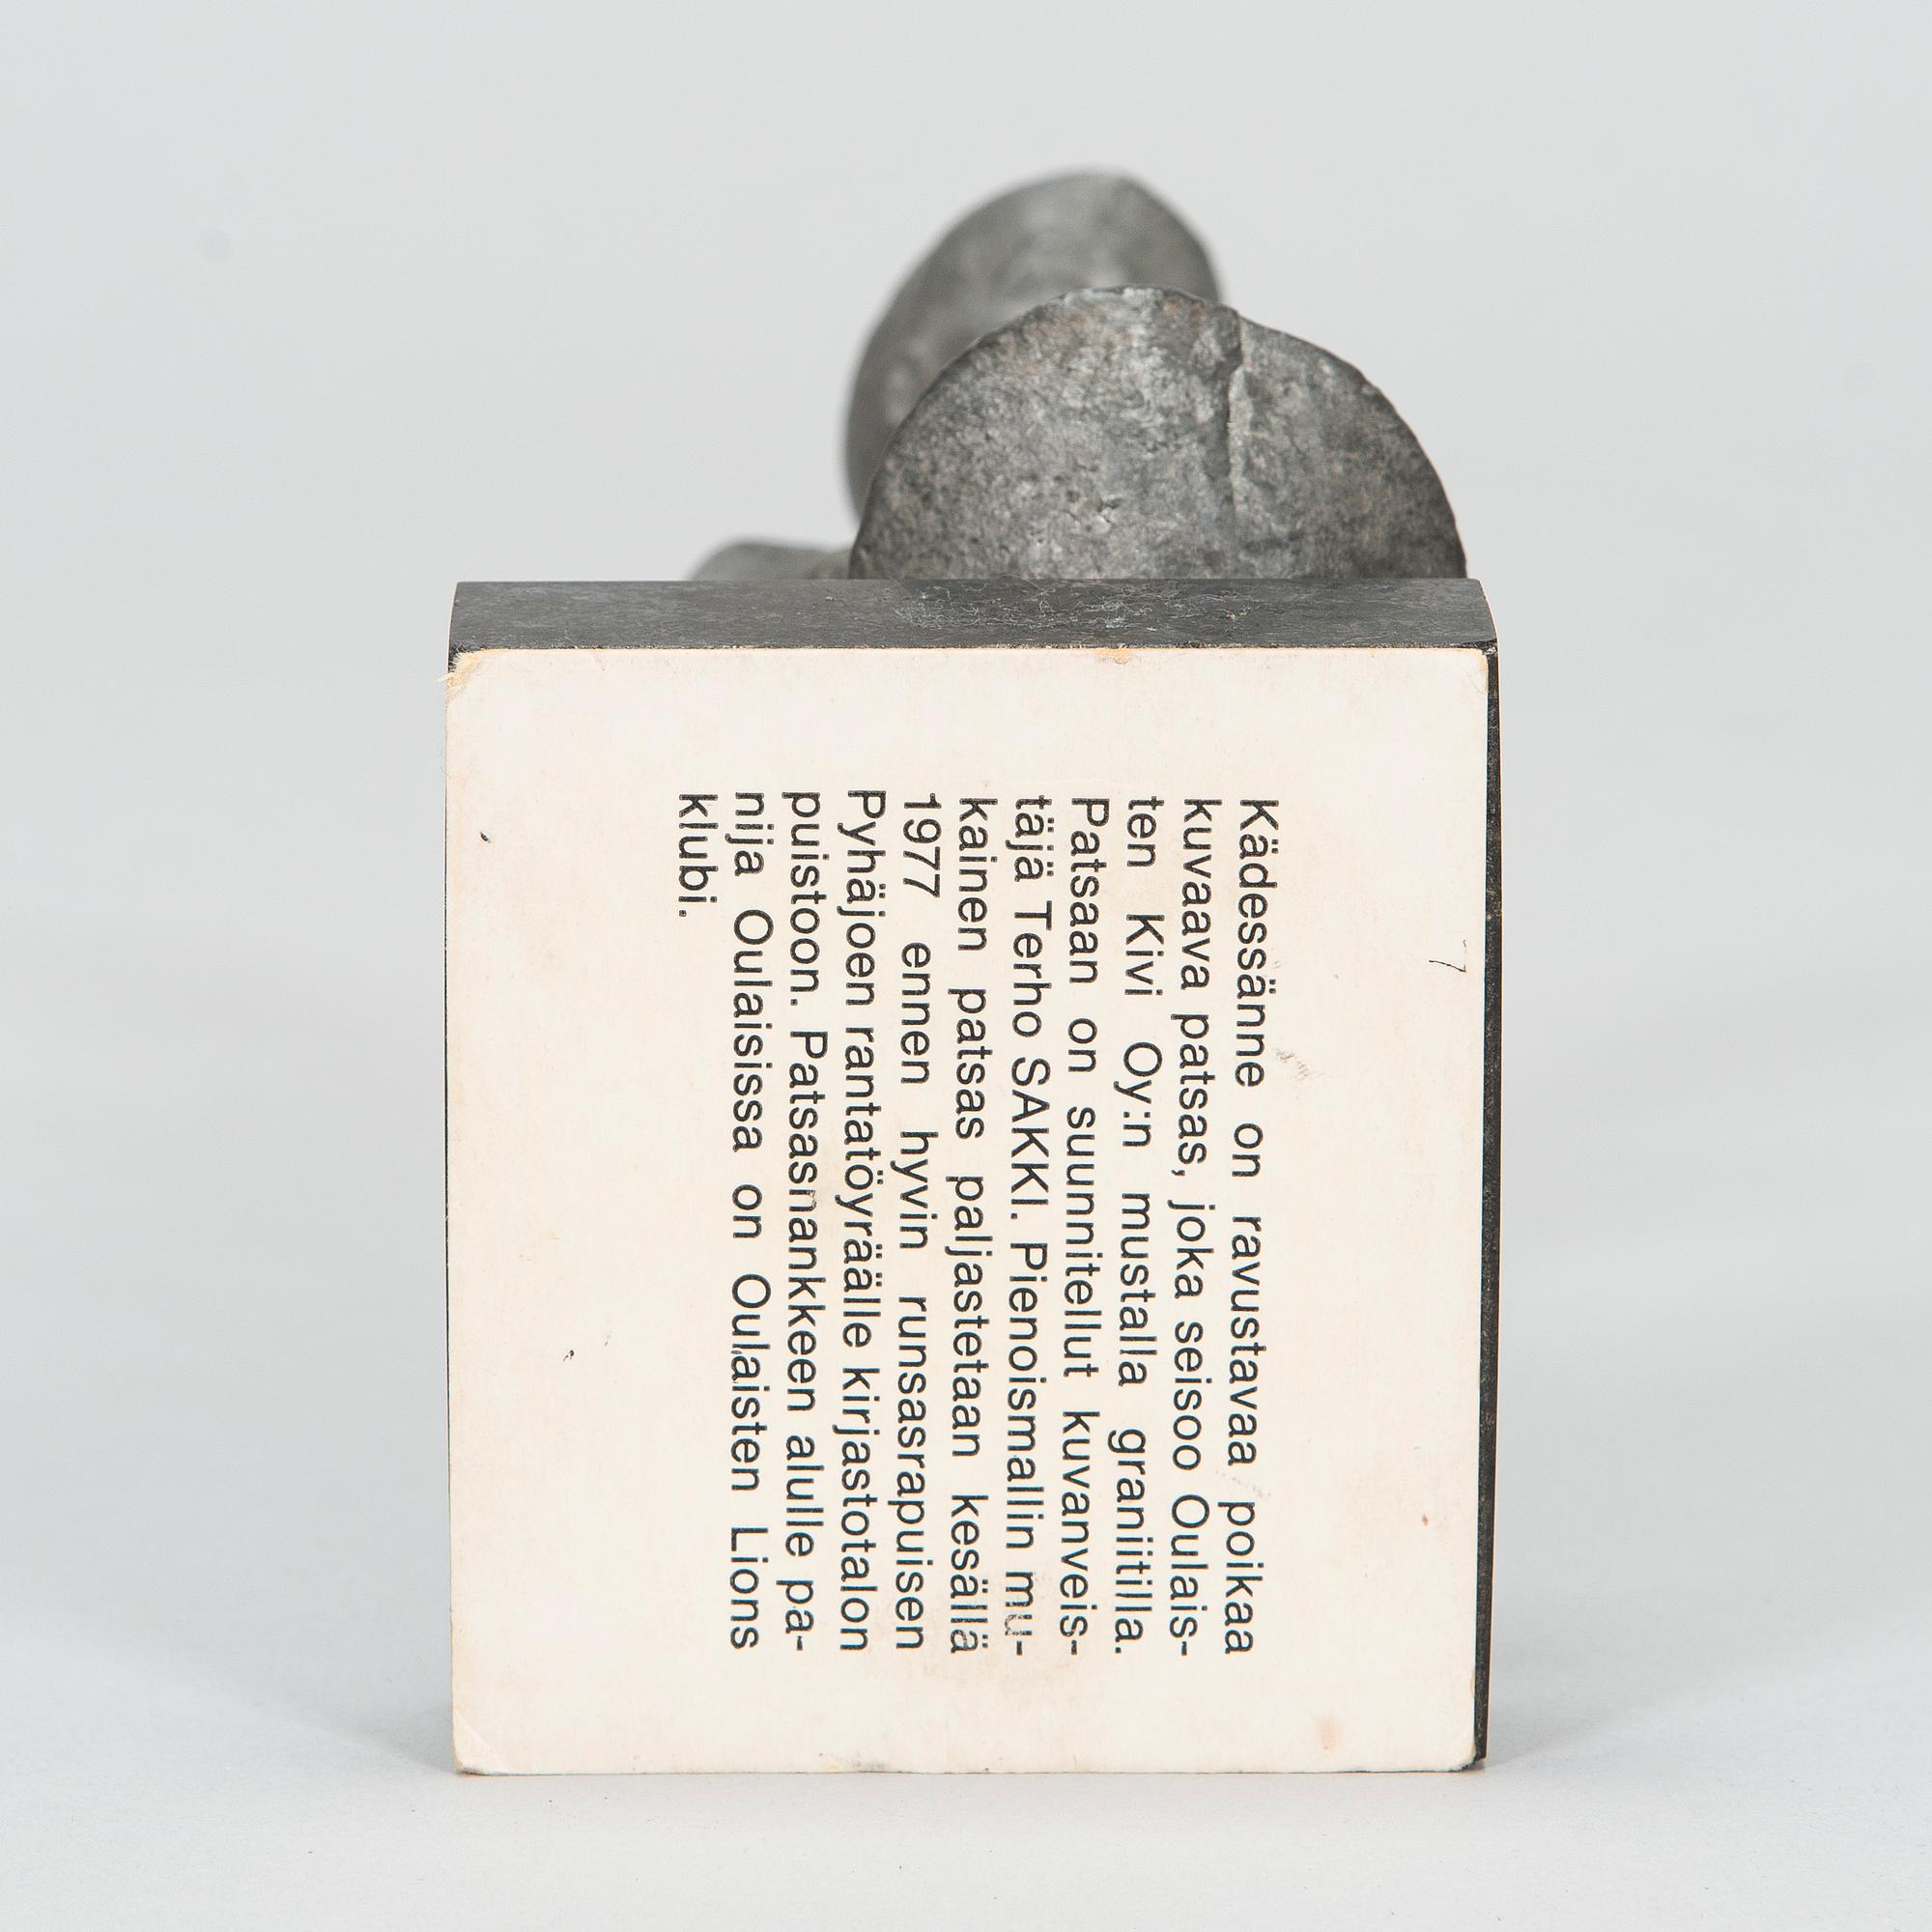 Kädessänne on ravustavaa poikaa
kuvaava patsas, joka seisoo Oulais-
ten Kivi Oy:n mustalla graniitilla.
Patsaan on suunnitellut kuvanveis-
täjä Terho SAKKI. Pienoismallin mu-
kainen patsas paljastetaan kesällä
1977 ennen hyvin runsasrapuisen
Pyhäjoen rantatöyräälle kirjastotalon
puistoon. Patsasnankkeen alulle pa-
nija Oulaisissa on Oulaisten Lions
klubi.